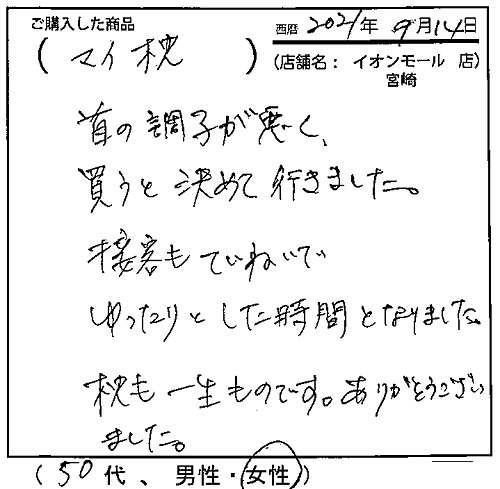 ご購入した商品
西暦 2021年 9月14日
(マイ枕)
(店舗名： イオンモール 店)
宮崎
首の調子が悪く、
買うと決めて行きました。
接客もていねいで
ゆったりとした時間となりました。
枕も一生ものです。ありがとうござい
ました。
(50代、男性・女性)